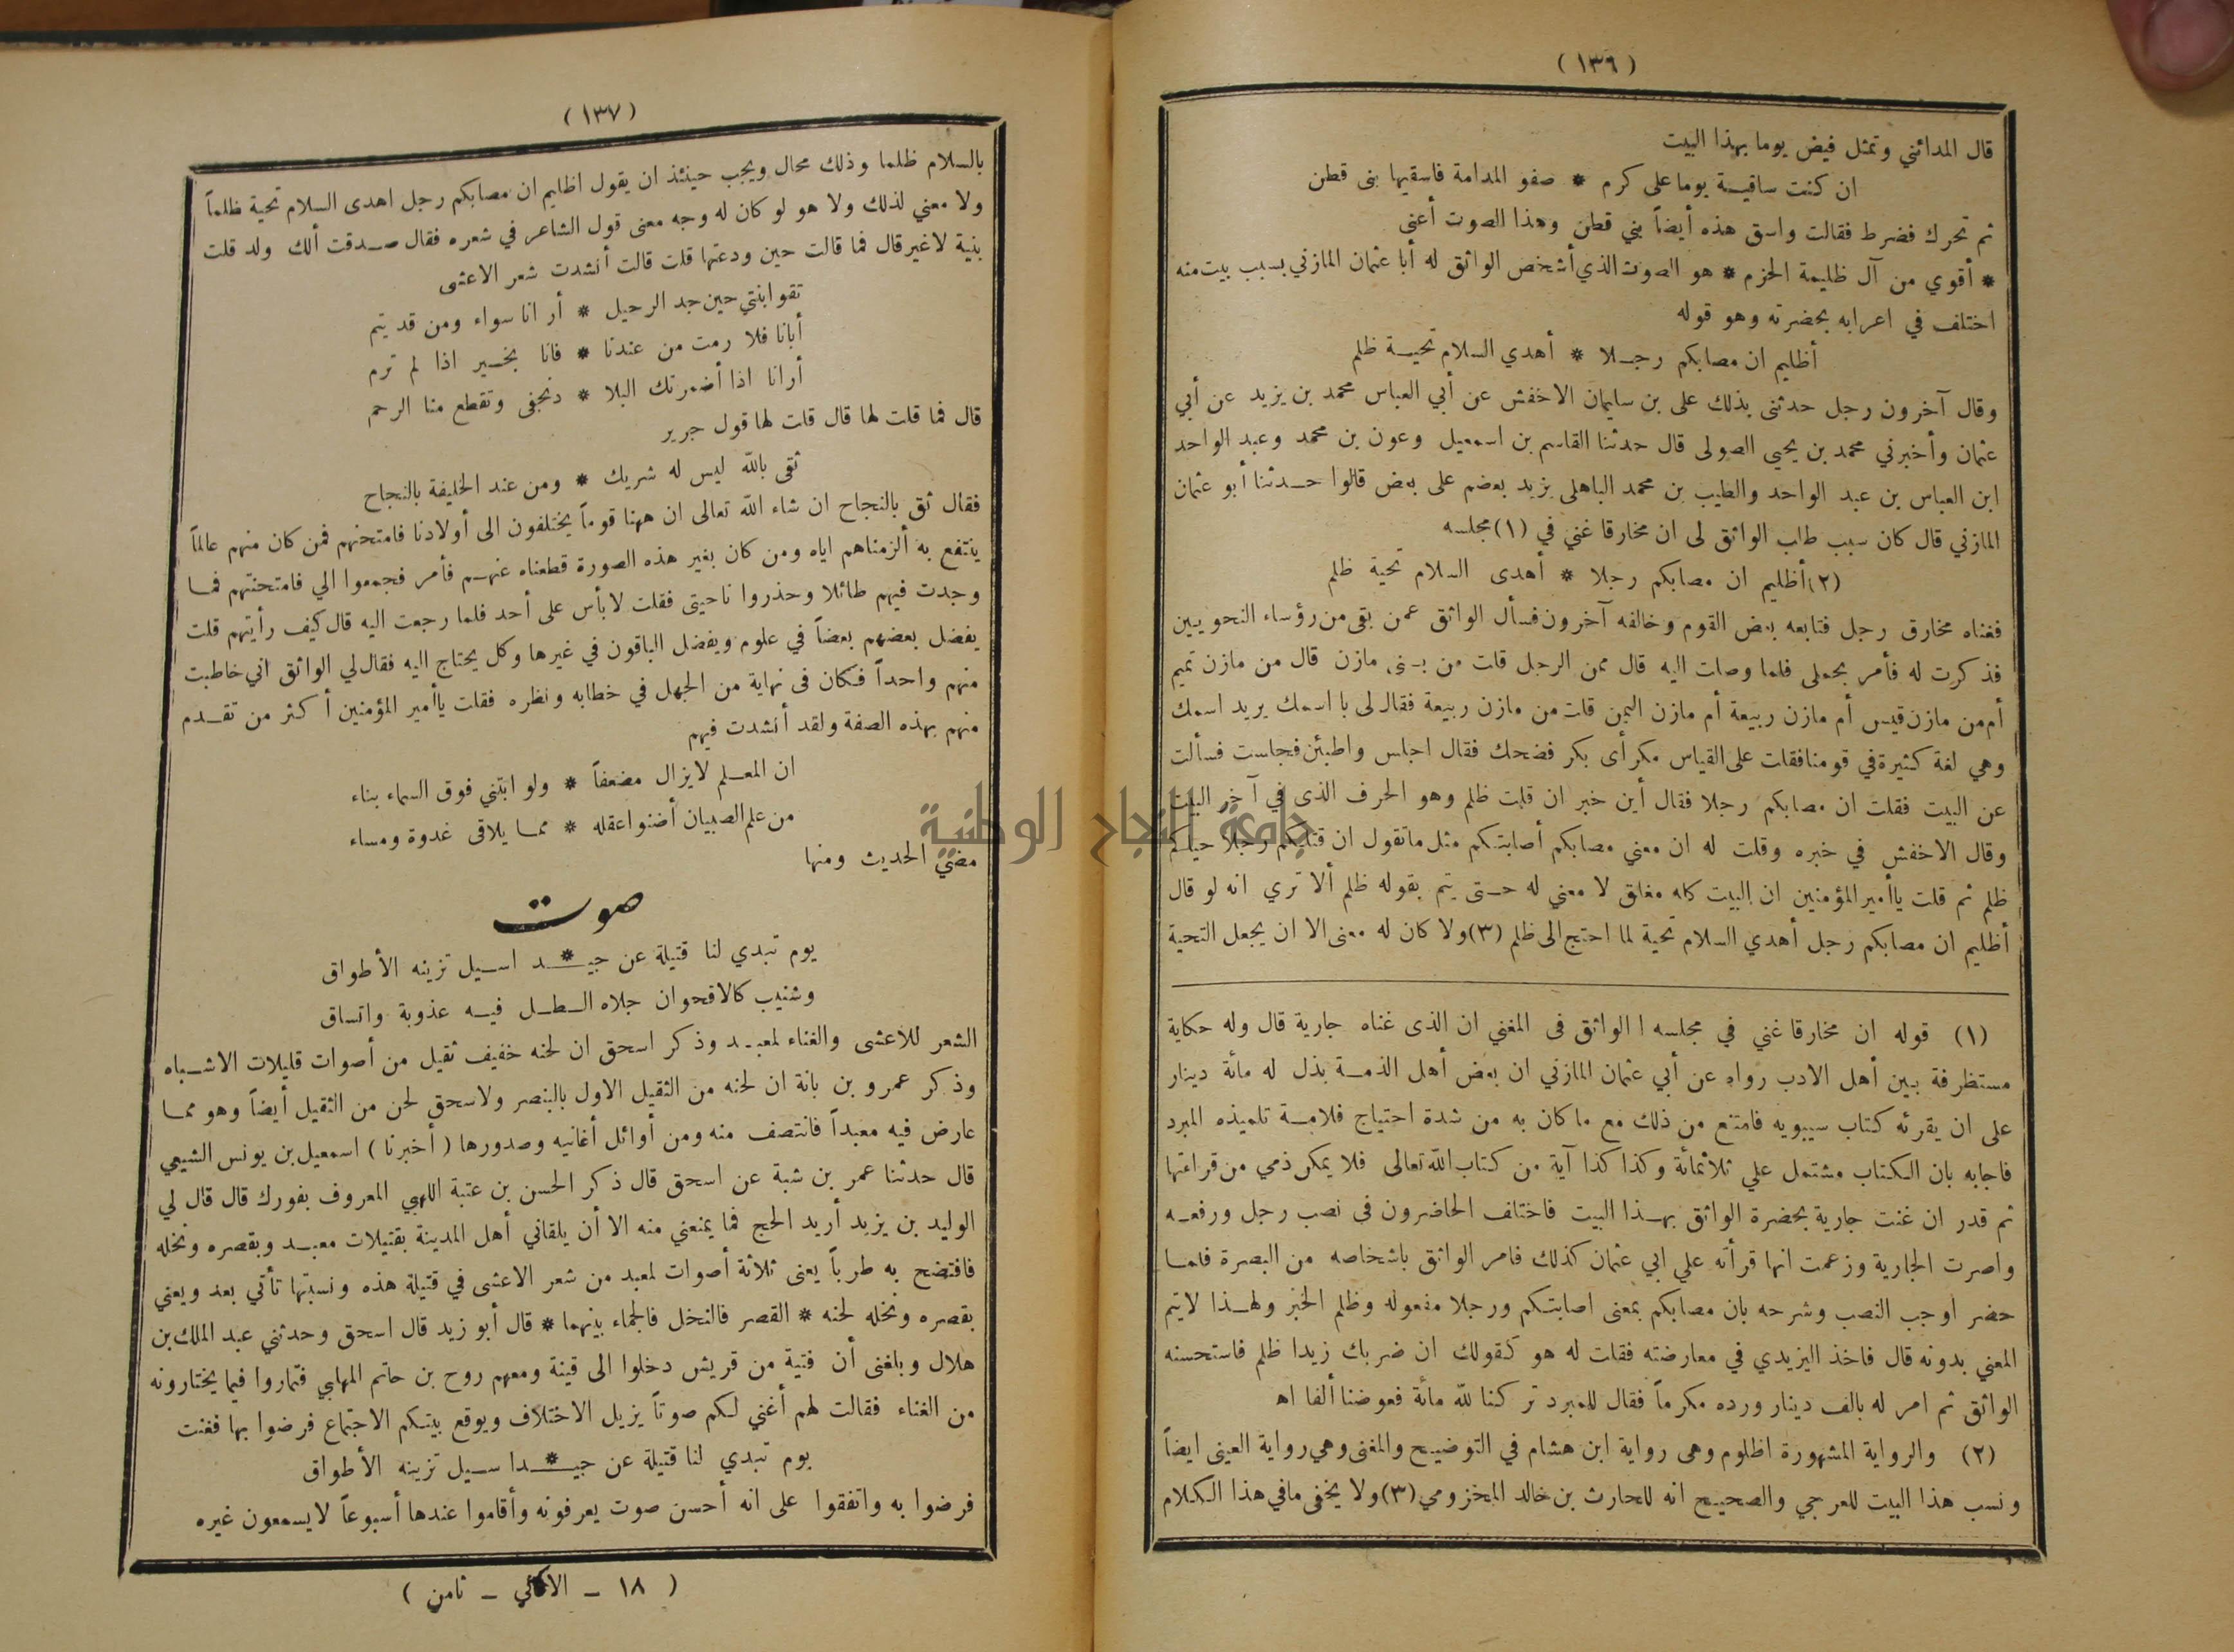 (١٣٦)
قال المدائني وتمثل فيض يوما بهذا البيت
ان كنت ساقيـة يوما على كرم * صفو المدامة فاسقيها بنى قطن
ثم تحرك فضرط فقالت واسق هذه أيضاً بني قطن وهذا الصوت أعنى
* أقوي من آل ظليمة الحزم * هو الصوت الذي أشخص الواثق له أبا عثمان المازني بسبب بيت منه
اختلف في اعرابه بحضرته وهو قوله
أظليم ان مصابكم رجـلا * أهدي السلام تحيـة ظلم
وقال آخرون رجل حدثنى بذلك على بن سليمان الاخفش عن أبي العباس محمد بن يزيد عن أبي
عثمان وأخبرني محمد بن يحيى الصولى قال حدثنا القاسم بن اسمعيل وعون بن محمد وعبد الواحد
ابن العباس بن عبد الواحد والطيب بن محمد الباهلى يزيد بعضهم على بعض قالوا حـدثنا أبو عثمان
المازني قال كان سبب طلب الواثق لى ان مخارقا غني في (١) مجلسه
(٢) أظليم ان مصابكم رجلا * أهدى السلام تحية ظلم
فغناه مخارق رجل فتابعه بعض القوم وخالفه آخرون فسأل الواثق عمن بقى من رؤساء النحويين
فذكرت له فأمر بحملى فلما وصلت اليه قال ممن الرجل قلت من بـنى مازن قال من مازن تميم
أم من مازن قيس أم مازن ربيعة أم مازن اليمن قلت من مازن ربيعة فقال لى با اسمك يريد اسمك
وهي لغة كثيرة في قومنا فقلت على القياس مكر أى بكر فضحك فقال اجلس واطبئن فجلست فسألت
عن البيت فقلت ان مصابكم رجلا فقال أين خبر ان قلت ظلم وهو الحرف الذى في آخر البيت
وقال الاخفش في خبره وقلت له ان معني مصابكم أصابتـكم مثل ما تقول ان قتلكم رجلا حياكم
ظلم ثم قلت يا أمير المؤمنين ان البيت كله مغلق لا معني له حـتى يتم بقوله ظلم ألا تري انه لو قال
أظليم ان مصابكم رجل أهدي السلام تحية لما احتج الى ظلم (٣) ولا كان له معنى الا ان يجعل التحية
(١) قوله ان مخارقا غني في مجلسه ا الواثق فى المغني ان الذى غناه جارية قال وله حكاية
مستظرفة بين أهل الادب رواه عن أبي عثمان المازني ان بعض أهل الذمـة بذل له مائة دينار
على ان يقرئه كتاب سيبويه فامتنع من ذلك مع ما كان به من شدة احتياج فلامـة تلميذه المبرد
فاجابه بان الـكتاب مشتمل علي ثلاثمائة وكذا كذا آية من كتاب الله تعالى فلا يمكن ذمي من قراءتها
ثم قدر ان غنت جارية بحضرة الواثق بهـذا البيت فاختلف الحاضرون في نصب رجل ورفعـه
واصرت الجارية وزعمت انها قرأته علي ابي عثمان كذلك فامر الواثق باشخاصه من البصرة فلمـا
حضر اوجب النصب وشرحه بان مصابكم بمعنى اصابتـكم ورجلا مفعوله وظلم الخبر ولهـذا لا يتم
المعني بدونه قال فاخذ اليزيدي في معارضته فقلت له هو كقولك ان ضربك زيدا ظلم فاستحسنه
الواثق ثم امر له بالف دينار ورده مكرماً فقال للمبرد تركنا لله مائة فعوضنا ألفا اه
(٢) والرواية المشهورة اظلوم وهى رواية ابن هشام في التوضيح والمغنى وهي رواية العينى ايضاً
ونسب هذا البيت للعرجي والصحيح انه للحارث بن خالد المخزومي (٣) ولا يخفى ما في هذا الـكلام
(١٣٧)
بالسلام ظلما وذلك محال ويجب حينئذ ان يقول اظليم ان مصابكم رجل اهدى السلام تحية ظلماً
ولا معني لذلك ولا هو لو كان له وجه معنى قول الشاعر في شعره فقال صـدقت ألك ولد قلت
بنية لا غير قال فما قالت حين ودعتها قلت قالت أنشدت شعر الاعشى
تقو ابنتي حين جد الرحيل * أرانا سواء ومن قد يتم
أبانا فلا رمت من عندنا * فانا بخـير اذا لم ترم
أرانا اذا أضمرتك البلا * دنجفى وتقطع منا الرحم
قال فما قلت لها قال قلت لها قول جرير
ثقى بالله ليس له شريك * ومن عند الخليفة بالنجاح
فقال ثق بالنجاح ان شاء الله تعالى ان ههنا قوماً يختلفون الى أولادنا فامتحنهم فمن كان منهم عالماً
ينتفع به ألزمناهم اياه ومن كان بغير هذه الصورة قطعناه عنهـم فأمر فجمعوا الي فامتحنتهم فمـا
وجدت فيهم طائلا وحذروا ناحيتى فقلت لا بأس على أحد فلما رجعت اليه قال كيف رأيتهم قلت
يفضل بعضهم بعضاً في علوم ويفضل الباقون في غيرها وكل يحتاج اليه فقال لي الواثق اني خاطبت
منهم واحداً فـكان فى نهاية من الجهل في خطابه ونظره فقلت يا أمير المؤمنين أكثر من تقـدم
منهم بهذه الصفة ولقد أنشدت فيهم
ان المعـلم لا يزال مضعفاً * ولو ابتني فوق السماء بناء
من علم الصبيان أضنوا عقله * ممـا يلاقى غدوة ومساء
مضي الحديث ومنها
صوت
يوم تبدي لنا قتيلة عن جيـ*ـد اسـيل تزينه الأطواق
وشتيب كالاقحوان جلاه الـطـل فيـه عذوبة واتساق
الشعر للاعشى والغناء لمعبـد وذكر اسحق ان لحنه خفيف ثقيل من أصوات قليلات الاشـباه
وذكر عمرو بن بانة ان لحنه من الثقيل الاول بالبنصر ولاسحق لحن من الثقيل أيضاً وهو ممـا
عارض فيه معبداً فانتصف منه ومن أوائل أغانيه وصدورها (أخبرنا) اسمعيل بن يونس الشيعي
قال حدثنا عمر بن شبة عن اسحق قال ذكر الحسن بن عتبة اللهبي المعروف بفورك قال قال لي
الوليد بن يزيد أريد الحج فما يمنعني منه الا أن يلقاني أهل المدينة بقتيلات معبـد وبقصره ونخله
فافتضح به طرباً يعنى ثلاثة أصوات لمعبد من شعر الاعشى في قتيلة هذه ونسبتها تأتي بعد ويعني
بقصره ونخله لحنه * القصر فالنخل فالجماء بينهما * قال أبو زيد قال اسحق وحدثني عبد الملك بن
هلال وبلغنى أن فتية من قريش دخلوا الى قينة ومعهم روح بن حاتم المهلبي فتماروا فيما يختارونه
من الغناء فقالت لهم أغني لـكم صوتاً يزيل الاختلاف ويوقع بينـكم الاجتماع فرضوا بها فغنت
يوم تبدي لنا قتيلة عن جيـ*ـدا سـيل تزينه الأطواق
فرضوا به واتفقوا على انه أحسن صوت يعرفونه وأقاموا عندها أسبوعاً لا يسمعون غيره
(١٨ ــ الاغاني ــ ثامن)
جامعة النجاح الوطنية